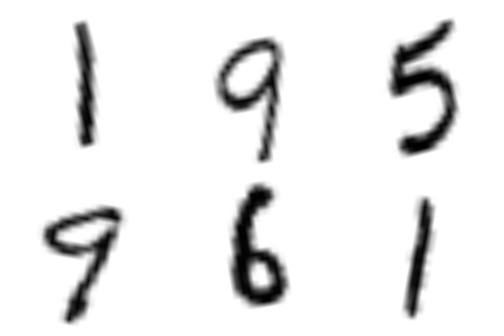 1 9 5
9 6 1